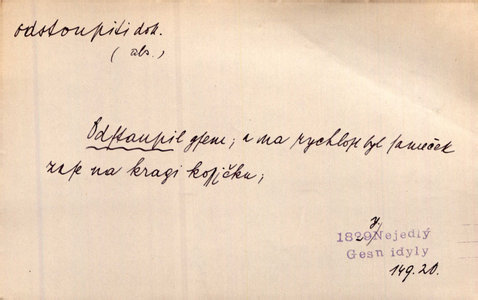 odstoupiti dok.
(abs.)
Odstaupil gsem; a na rychlost byl sameček
zase na kragi kossjčku;
1829 Nejedlý
Gesn idyly
149.20.